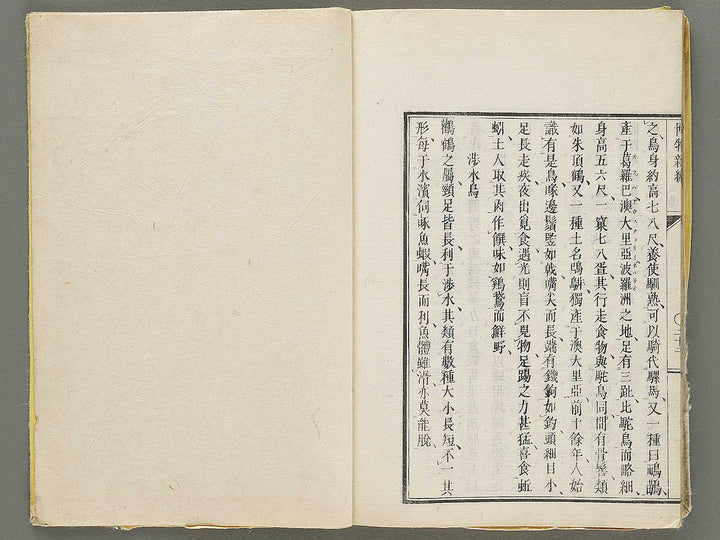 博物新編
之鳥身約高七八尺養使馴熟可以騎代騾馬又一種曰鴯鶓
產于葛羅巴澳大里亞波羅洲之地足有三趾比駝鳥而略細
身高五六尺一窠七八蛋其行走食物與駝鳥同間有骨髻類
如朱頂鶴又一種土名鴟鴸獨產于澳大里亞前十餘年人始
識有是鳥喙邊鬚豎如戟嘴尖而長端有鐖鉤如釣頭細目小
足長走疾夜出覓食遇光則盲不見物足踢之力甚猛喜食蚯
蚓土人取其肉作饌味如鷄鶩而鮮野
涉水鳥
鸛鶴之屬頸足皆長利于涉水其類有數種大小長短不一其
形每于水濱伺啄魚蝦嘴長而利魚體雖滑亦莫能脫